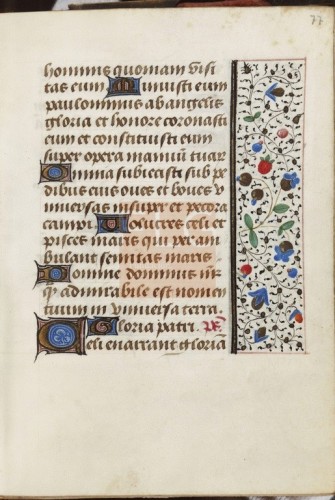 77
hominis quoniam visi
tas eum Minuisti eum
paulominus ab angelis
gloria et honore coronasti
eum et constituisti eum
super opera manuū tuar
Omnia subiecisti sub pe
dibus eius oves et boves v
niversas insuper et pecora
campi. Volucres celi et
pisces maris qui peram
bulant semitas maris
Domine dominus nr̄
q̄ admirabile est nomen
tuum in vniversa terra.
Gloria patri. ps
Celi enarrant gloria